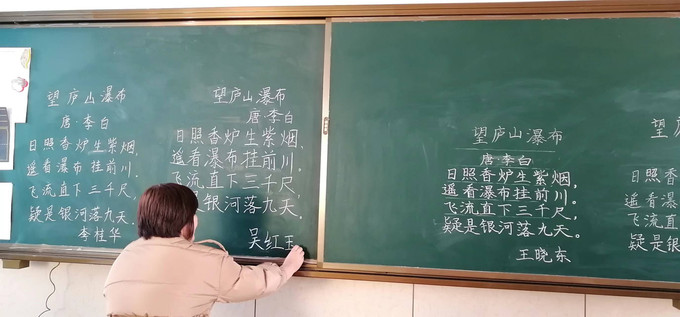 望庐山瀑布
唐·李白
日照香炉生紫烟,
遥看瀑布挂前川,
飞流直下三千尺,
疑是银河落九天
李桂华
望庐山瀑布
唐·李白
日照香炉生紫烟,
遥看瀑布挂前川,
飞流直下三千尺,
是银河落九天.
吴红玉
望庐山瀑布
唐·李白
日照香炉生紫烟,
遥看瀑布挂前川。
飞流直下三千尺,
疑是银河落九天。
王晓东
望庐
日照香
遥看瀑
飞流直
疑是银